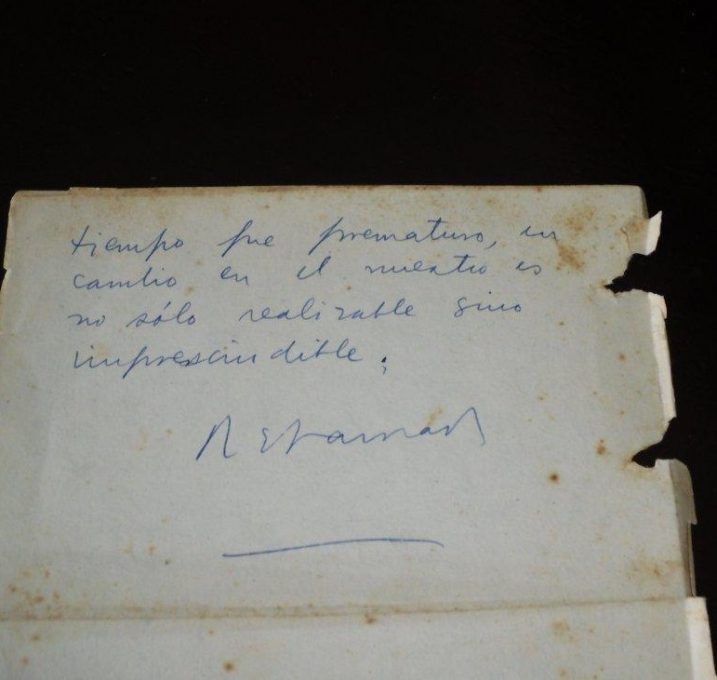 tiempo fue prematuro, en
cambio en el nuestro es
no sólo realizable sino
imprescindible.